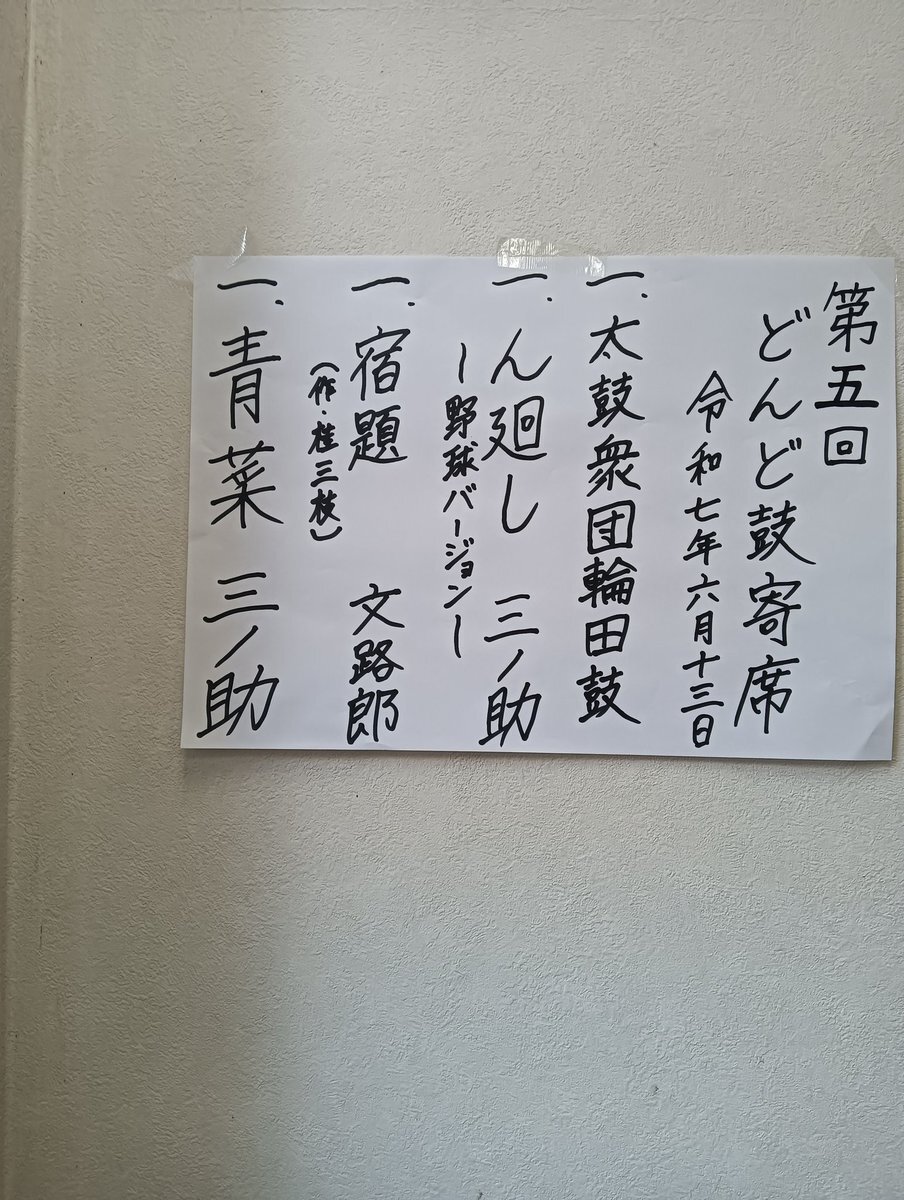 第五回
どんど鼓寄席
令和七年六月十三日
一、太鼓衆団輪田鼓
一、ん廻し 三ノ助
ー野球バージョンー
一、宿題 文路郎
(作・桂三枝)
一、青菜 三ノ助